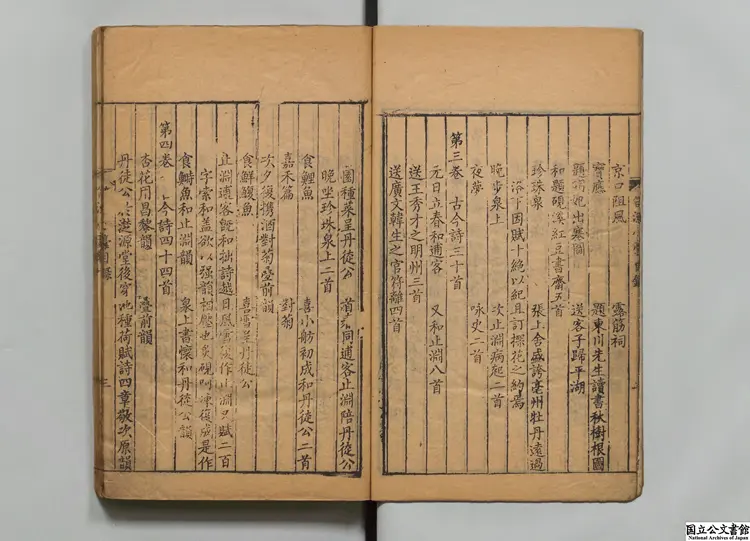 京口阻風　露筋祠
寶應　題東川先生讀書秋樹根圖
題明妃出塞圖　送客子歸平湖
和題硯溪紅豆書齋五首
珍珠泉　張上舍盛誇亳州牡丹遠過
洛下因賦十絶以紀且訂探花之約焉
晚步泉上　次止淵病起二首
夜夢　咏史二首
第三卷　古今詩三十首
元日立春和逋客　又和止淵八首
送王秀才之明州三首
送廣文韓生之官符離四首
園種菜呈丹徒公　同逋客止淵陪丹徒公
晚坐珍珠泉上二首
食鰹魚　喜小舫初成和丹徒公二首
嘉禾篇　對菊
次夕復携酒對菊疊前韻
食鮮鰒魚　喜雪呈丹徒公
止淵逋客既和拙詩越日風雪作止淵又賦二百
字索和蓋欲以强韻也炙硯呵凍復成是作
食鰣魚和止淵韻　泉上書懷和丹徒公韻
第四卷　今詩四十四首
杏花用昌黎韻　疊前韻
丹徒公於澄源堂後穿池種荷賦詩四章敬次原韻
目錄　三
国立公文書館
National Archives of Japan